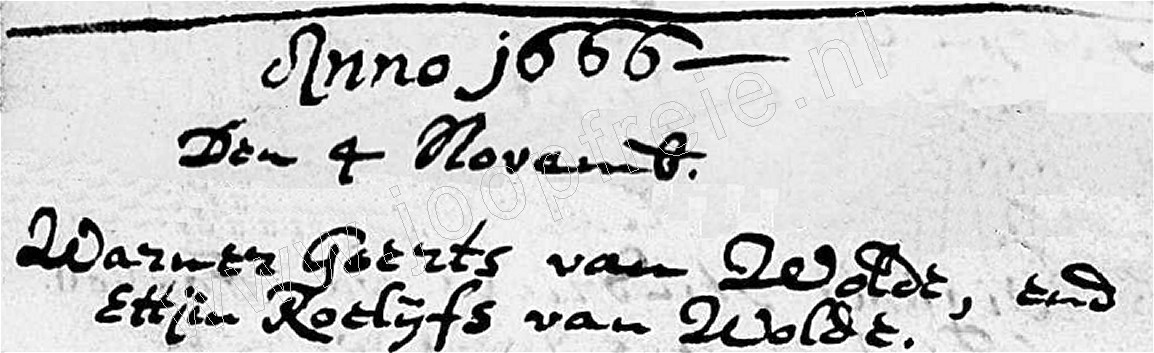 Anno 1666
Den 4 Novemb.
Warner Geerts van Wolde, end
Ettjin Roelyfs van Wolde.
www.joopfreie.nl